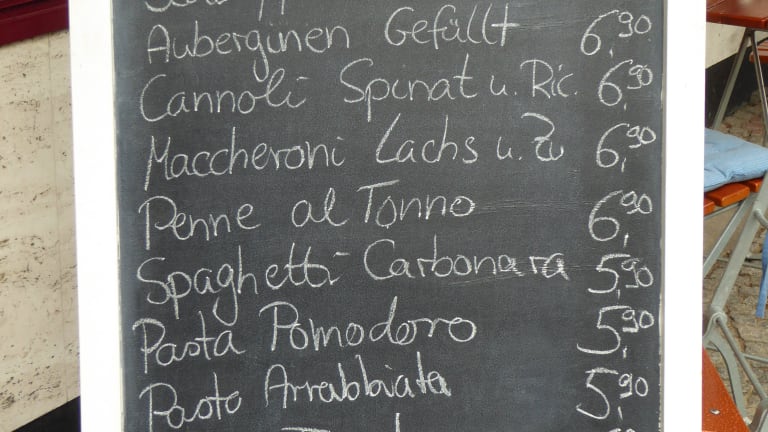 Auberginen Gefüllt 6,90
Cannoli Spinat u. Ric. 6,90
Maccheroni Lachs u. Zu 6,90
Penne al Tonno 6,90
Spaghetti Carbonara 5,90
Pasta Pomodoro 5,90
Pasta Arrabbiata 5,90